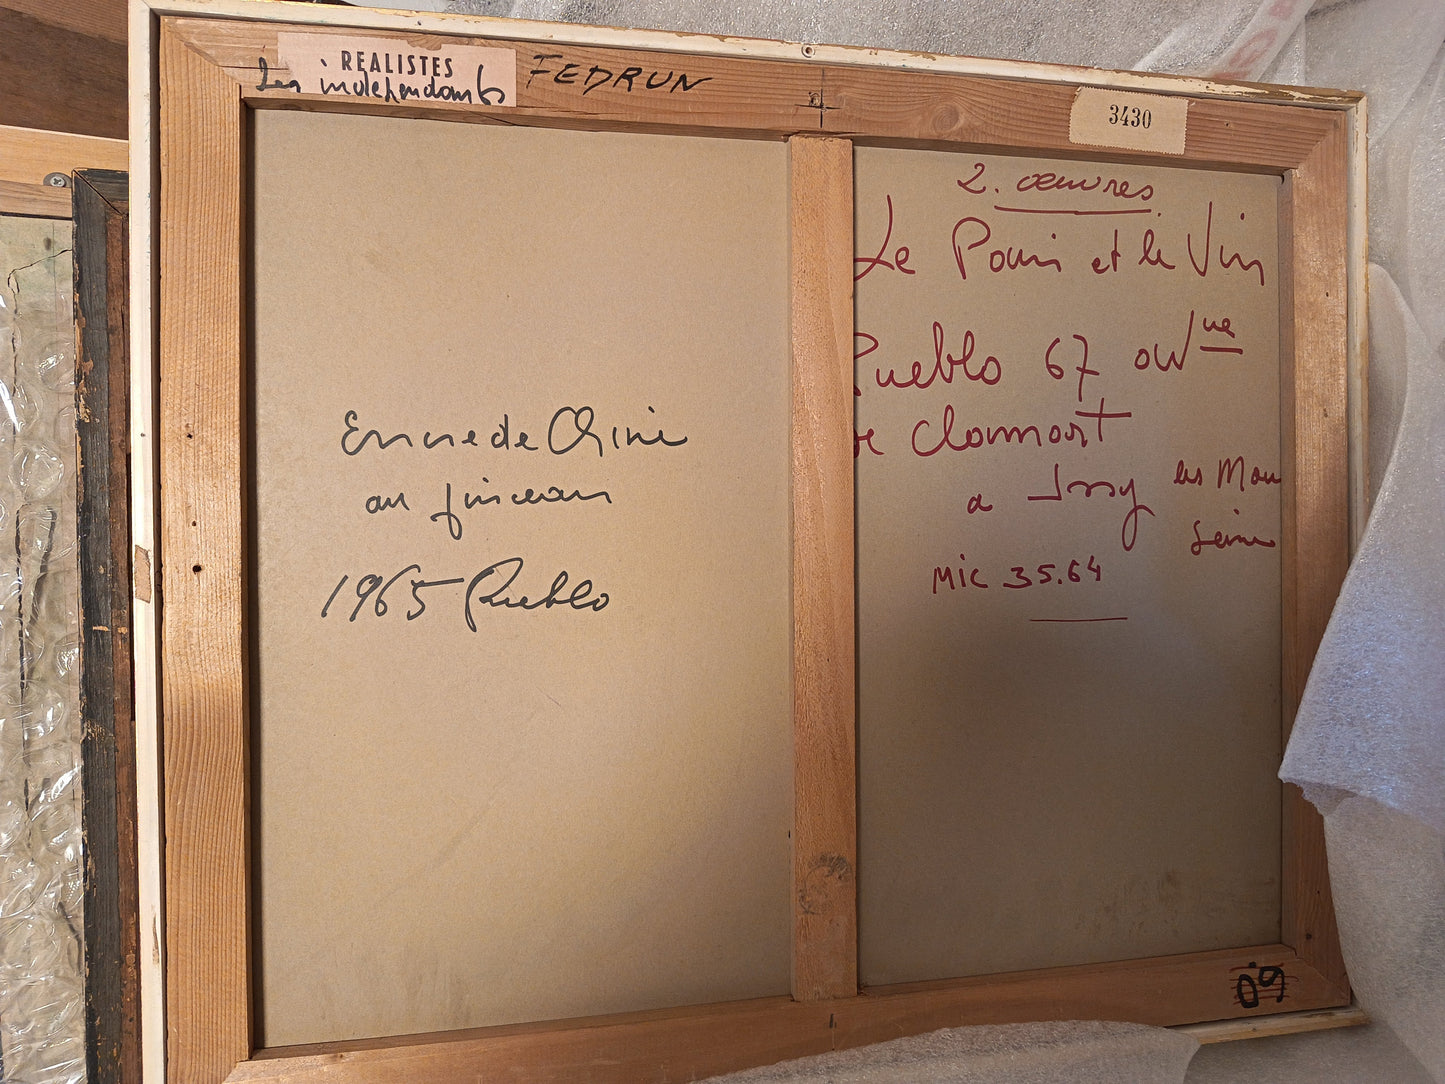 REALISTES
Les indépendants
FEDRUN
3430
2. œuvres
Le Pain et le Vin
Pueblo 67 av ue
de Clamart
a Issy les Mou
Seine
MIC 35.64
Encre de Chine
au pinceau
1965 Pueblo